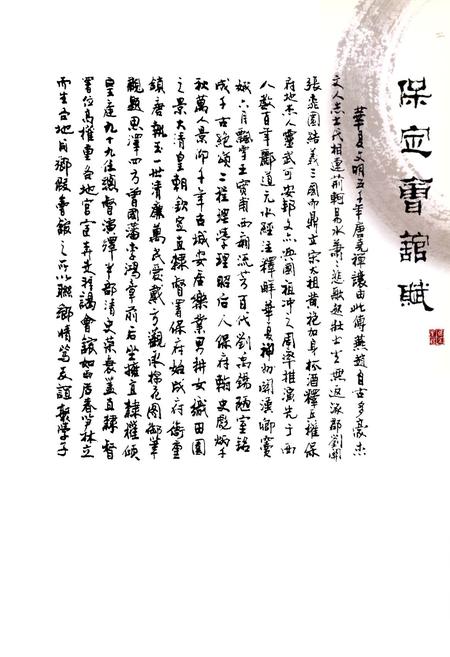 保定會館賦
華夏文明五千年唐堯禪讓由此傳燕趙自古多豪杰
文人志士代相連荊軻易水蕭蕭悲歌起壯士一去無返涿郡劉關
張桃園結義三國而鼎立宋太祖黃袍加身杯酒釋兵權保
府地杰人靈武可安邦文亦興國祖冲之周率推演先于西
人数百年酈道元水經注釋鮮華夏神州關漢卿竇
娥六月飄雪王實甫西厢流芳百代劉禹錫陋室銘
成千古絕頌二程理學理昭后人保府翰史彪炳千
秋萬人景仰千年古城安居樂業男耕女織田園
之景大清皇朝欽定直隸督署保府始成府衙重
鎮唐執玉一世清廉萬民愛戴方觀承棉花圖御筆
親題恩澤四方曾國藩李鴻章前后坐擁直隸權傾
皇庭九十九位總督演繹半部清史榮衰蓋直隸督
署位高權重各地官宦奔走拜謁會館如雨后春笋林立
而生各地同鄉假會館之所以聯鄉情篤友誼敦學子